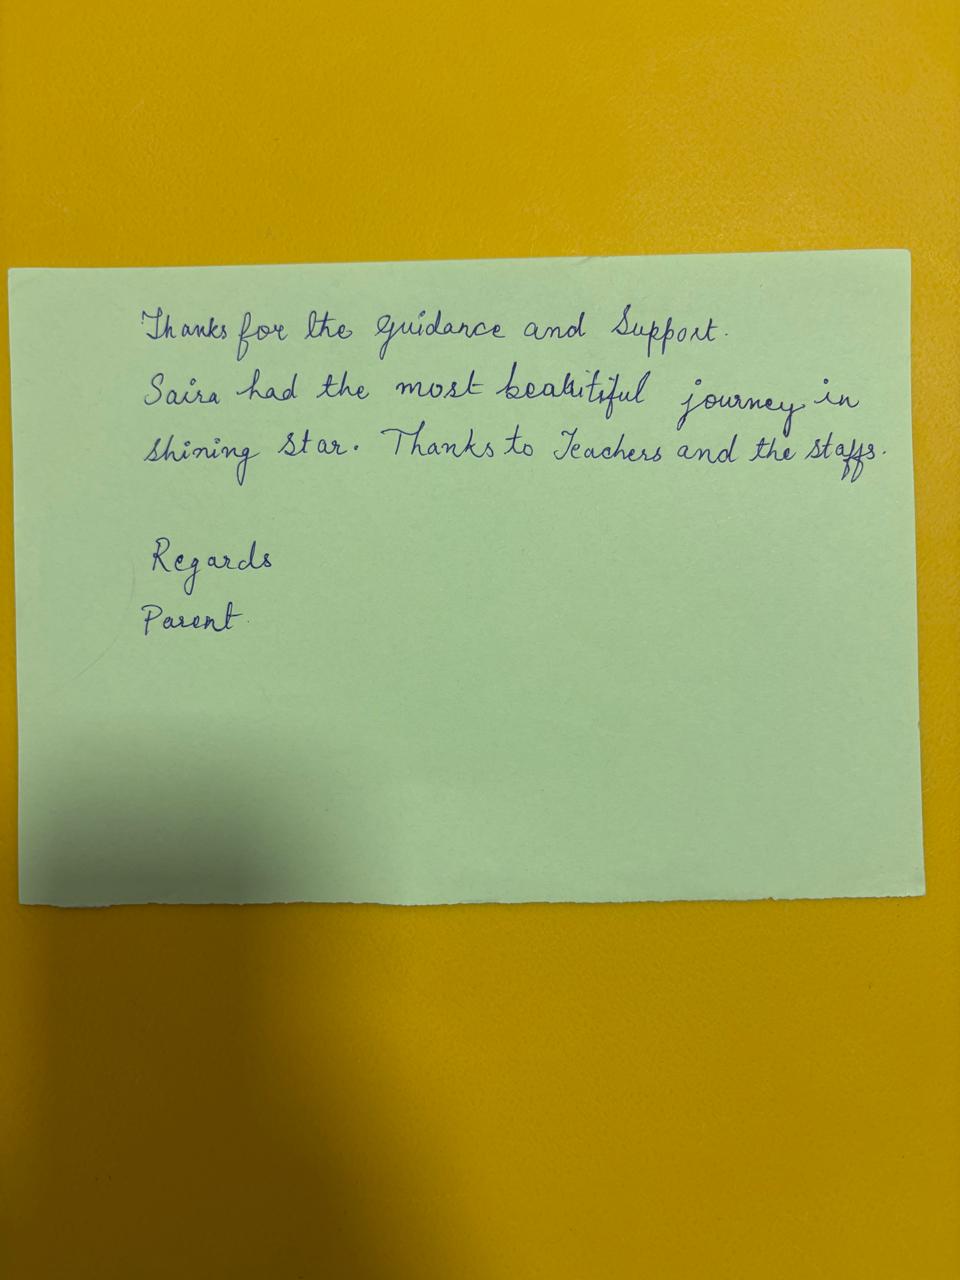 Thanks for the guidance and Support.
Saira had the most beautiful journey in
shining star. Thanks to Teachers and the staffs.
Regards
Parent